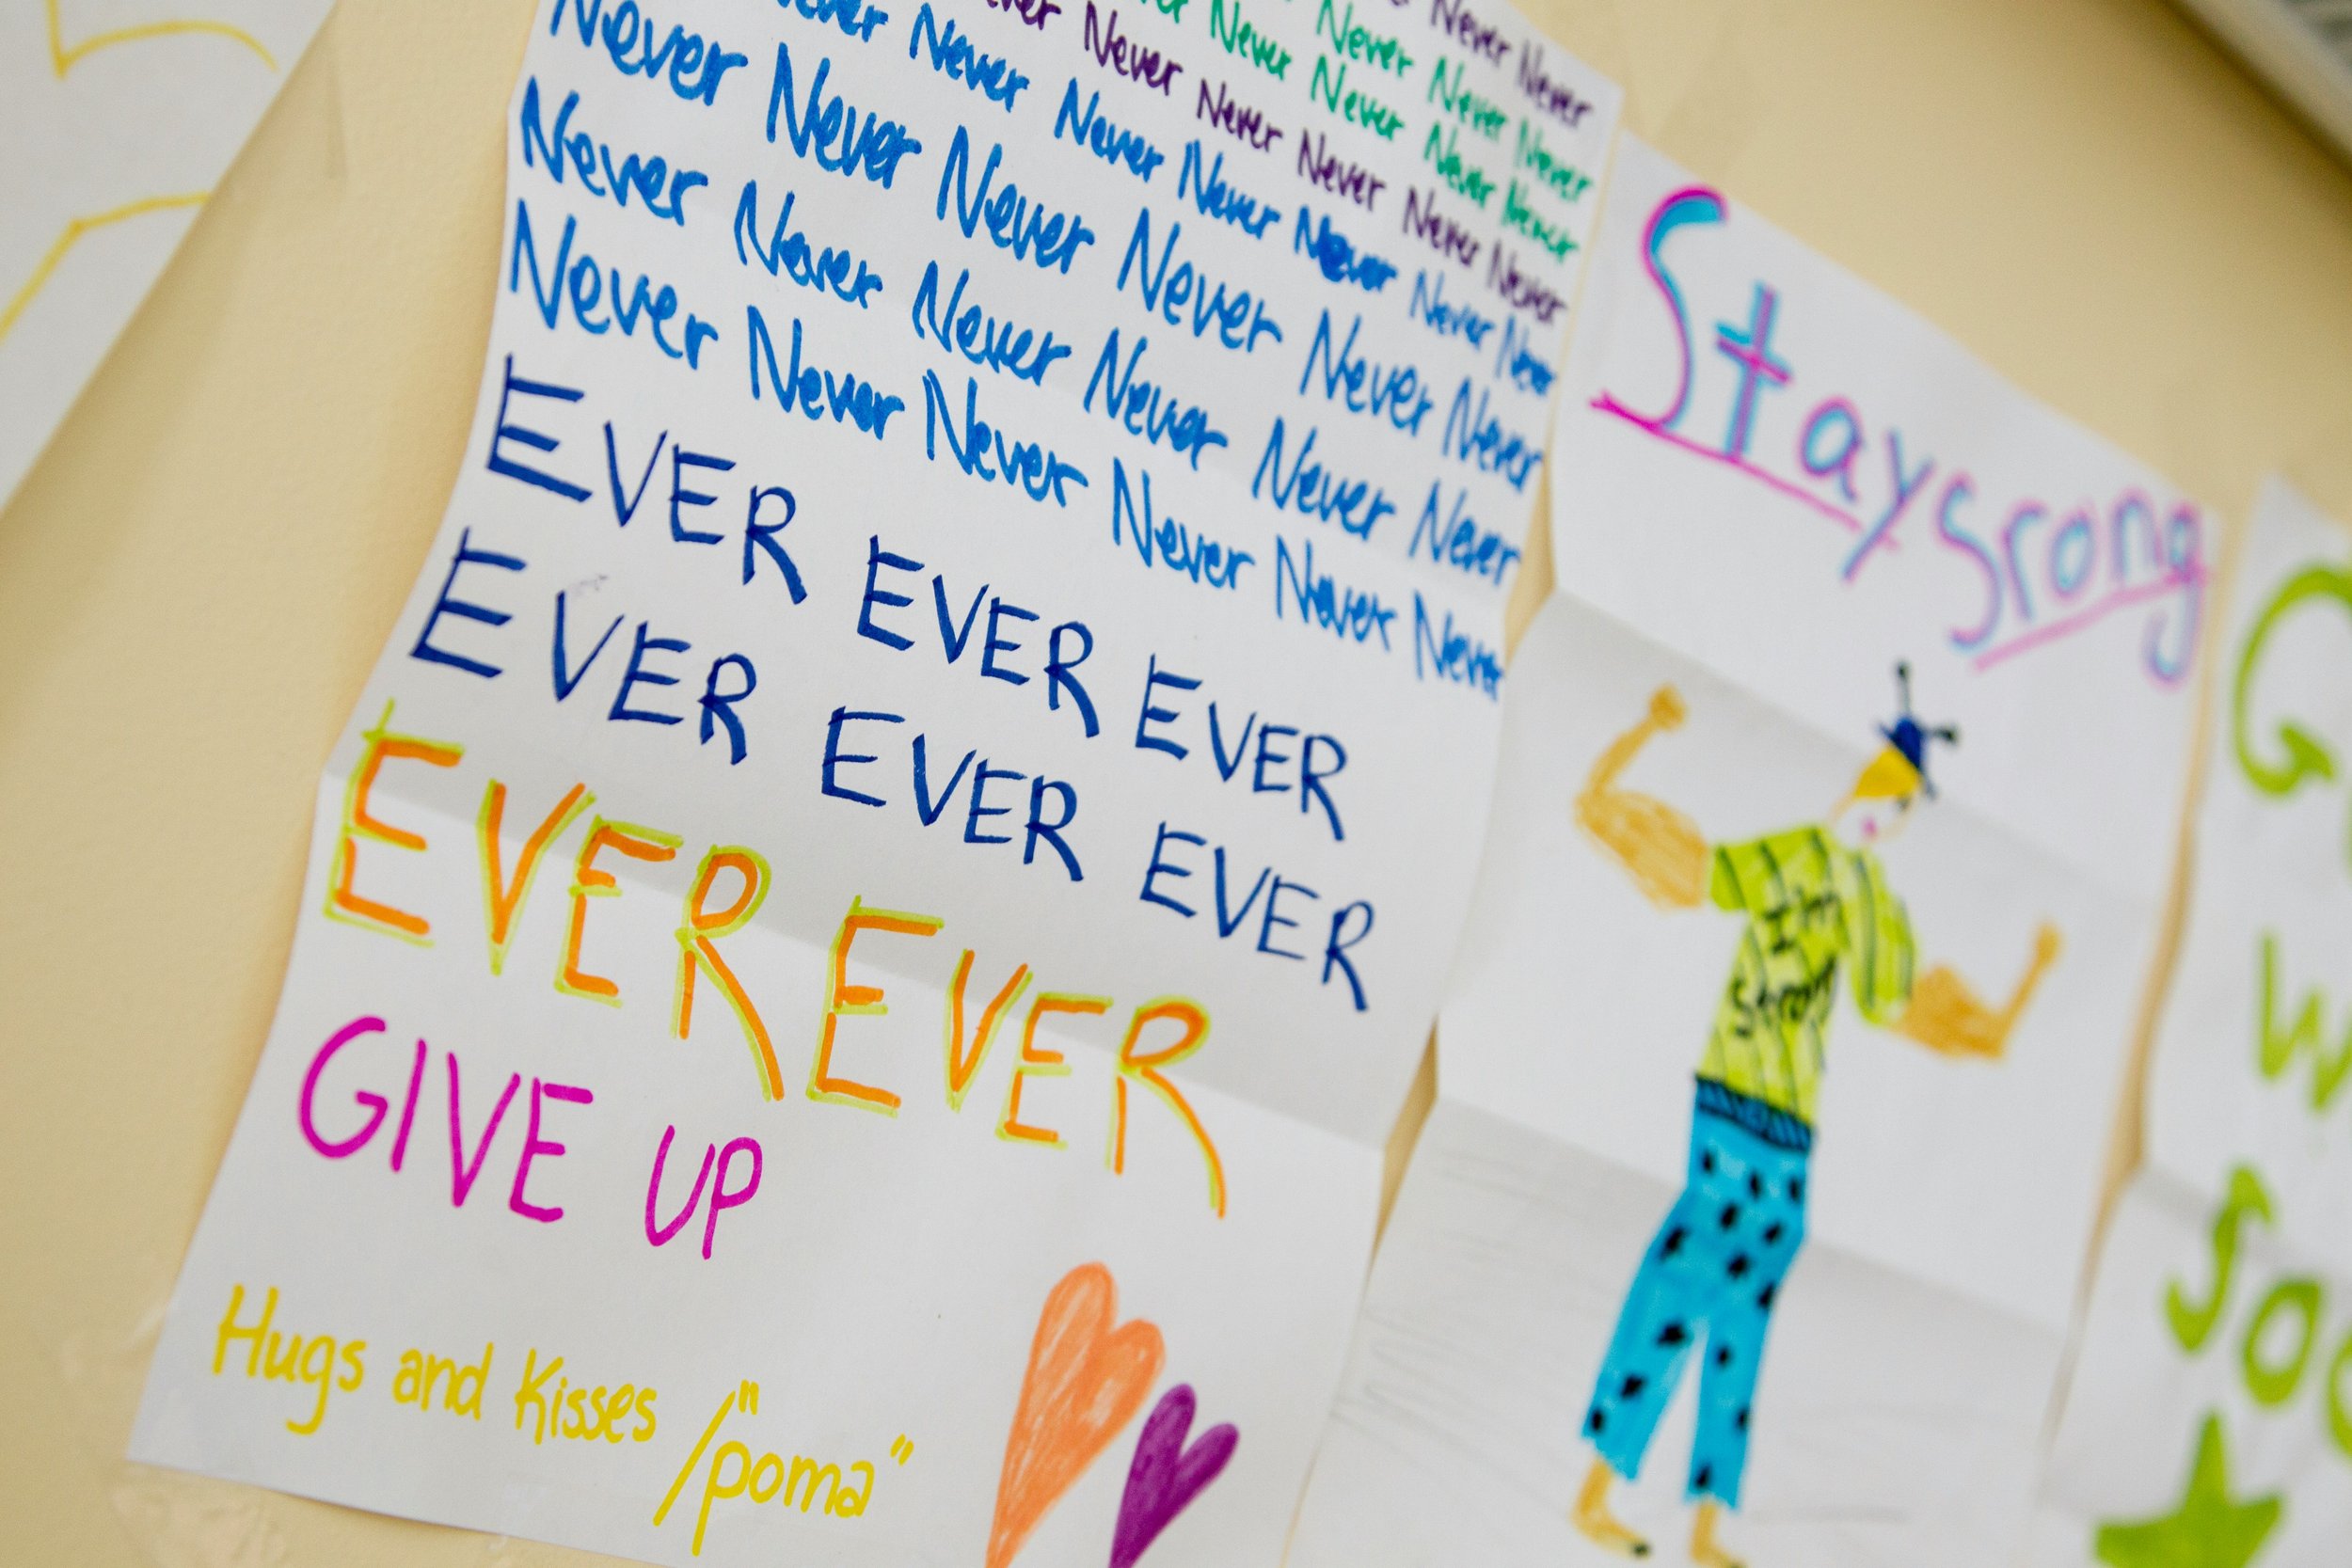 Never Never
Never Never Never
Never Never Never Never
Never Never Never Never Never
Never Never Never Never Never Never
Never Never Never Never Never Never
Never Never Never Never Never Never
Never Never Never Never Never Never
EVER EVER EVER
EVER EVER EVER
EVER EVER
GIVE UP
Hugs and Kisses
/"poma"
Stay srong
I'm
strong